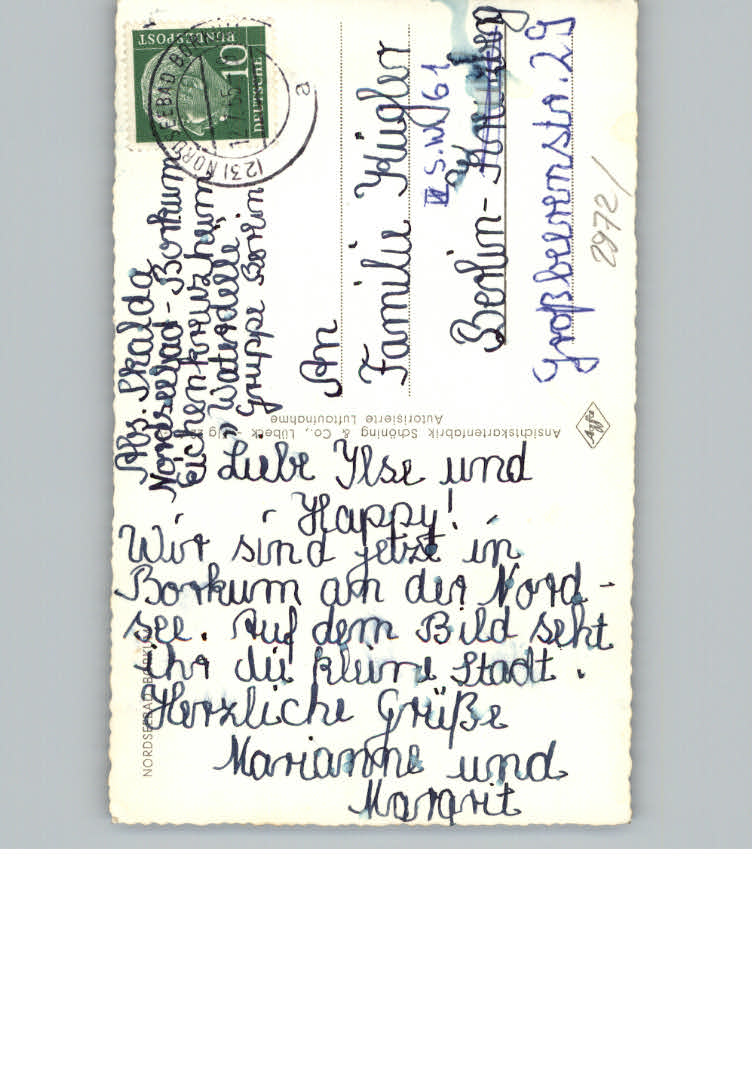 Liebe Ilse und
Happy!
Wir sind jetzt in
Borkum an der Nord-
see. Auf dem Bild seht
ihr die kleine Stadt.
Herzliche Grüße
Marianne und
Margrit
Abs. Skalda
Nordseebad-Borkum
Eichenkreuzheim
"Waterdelle"
Gruppe Berlin
An
Familie Kügler
II S.W. 61
Berlin-
Großbeerenstr. 29
2972/
DEUTSCHE
BUNDESPOST
10
(23) NORDSEEBAD
a
Ansichtskartenfabrik Schöning & Co., Lübeck
Autorisierte Luftaufnahme
Agfa
NORDSEEBAD BORKUM